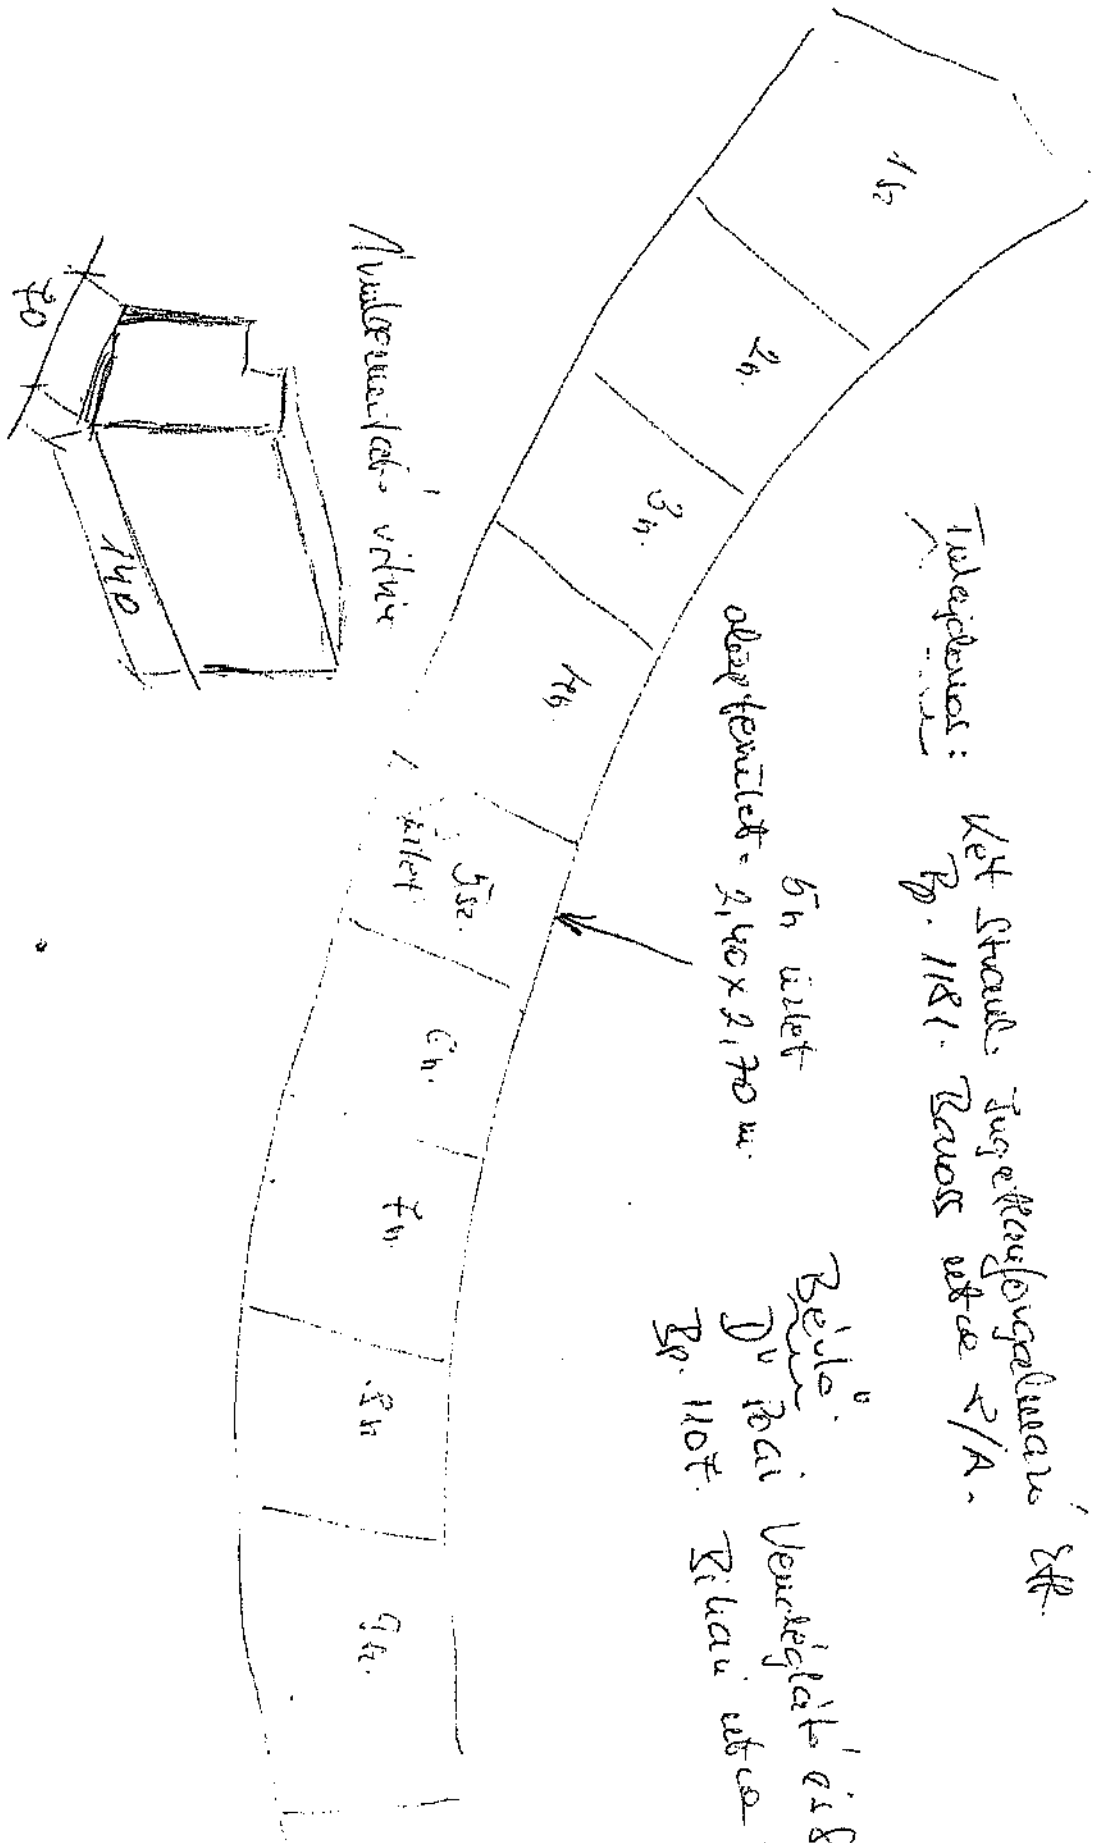 Tulajdonos: Két Strand. Ingatlanforgalmazó Kft.
Bp. 1181. Baross utca 7/A.
Bérlő:
D" Pati Vendéglátó és S
Bp. 1107. Bihari utca
5sz üzlet
alapterület = 2,40 x 2,70 m.
1sz
2sz.
3sz.
4sz.
5sz.
üzlet
6sz.
7sz.
8sz
9sz.
vitrin
70
140